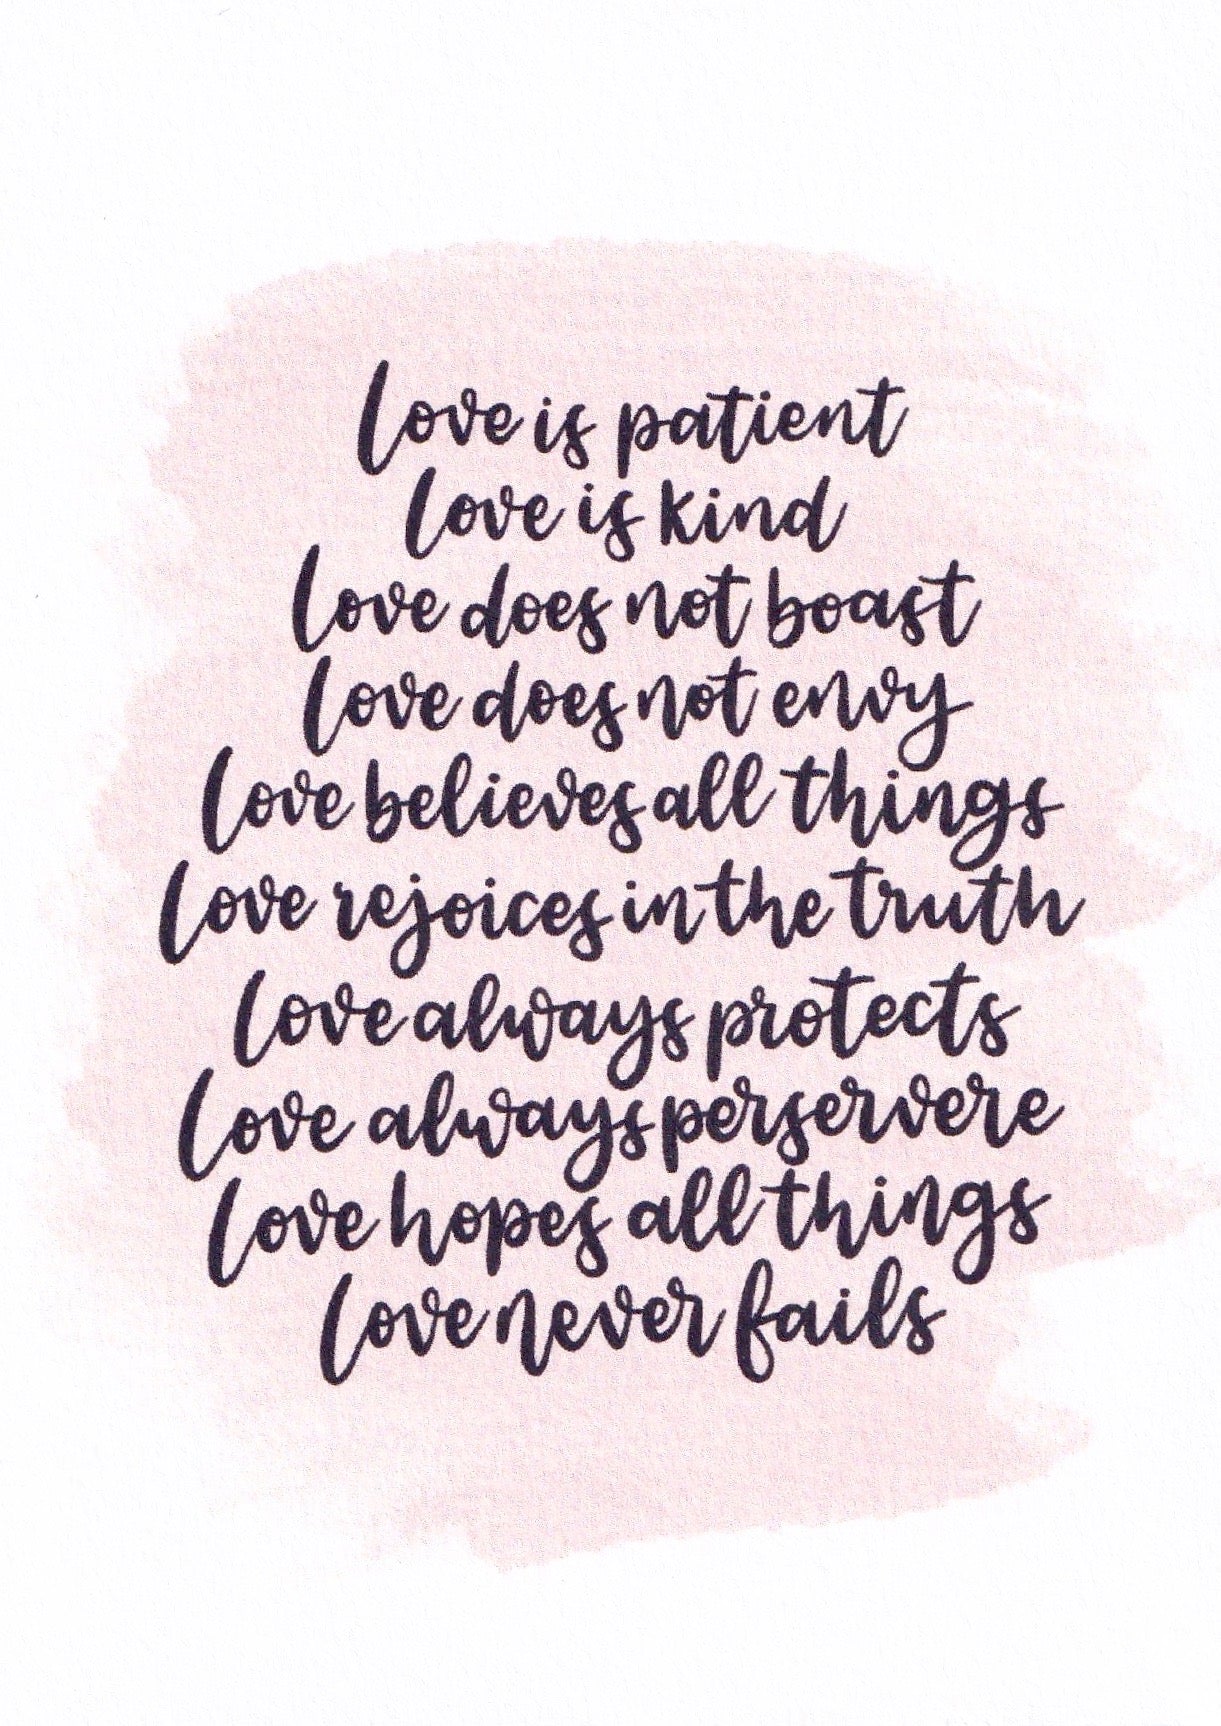 Love is patient
Love is kind
Love does not boast
Love does not envy
Love believes all things
Love rejoices in the truth
Love always protects
Love always perservere
Love hopes all things
Love never fails